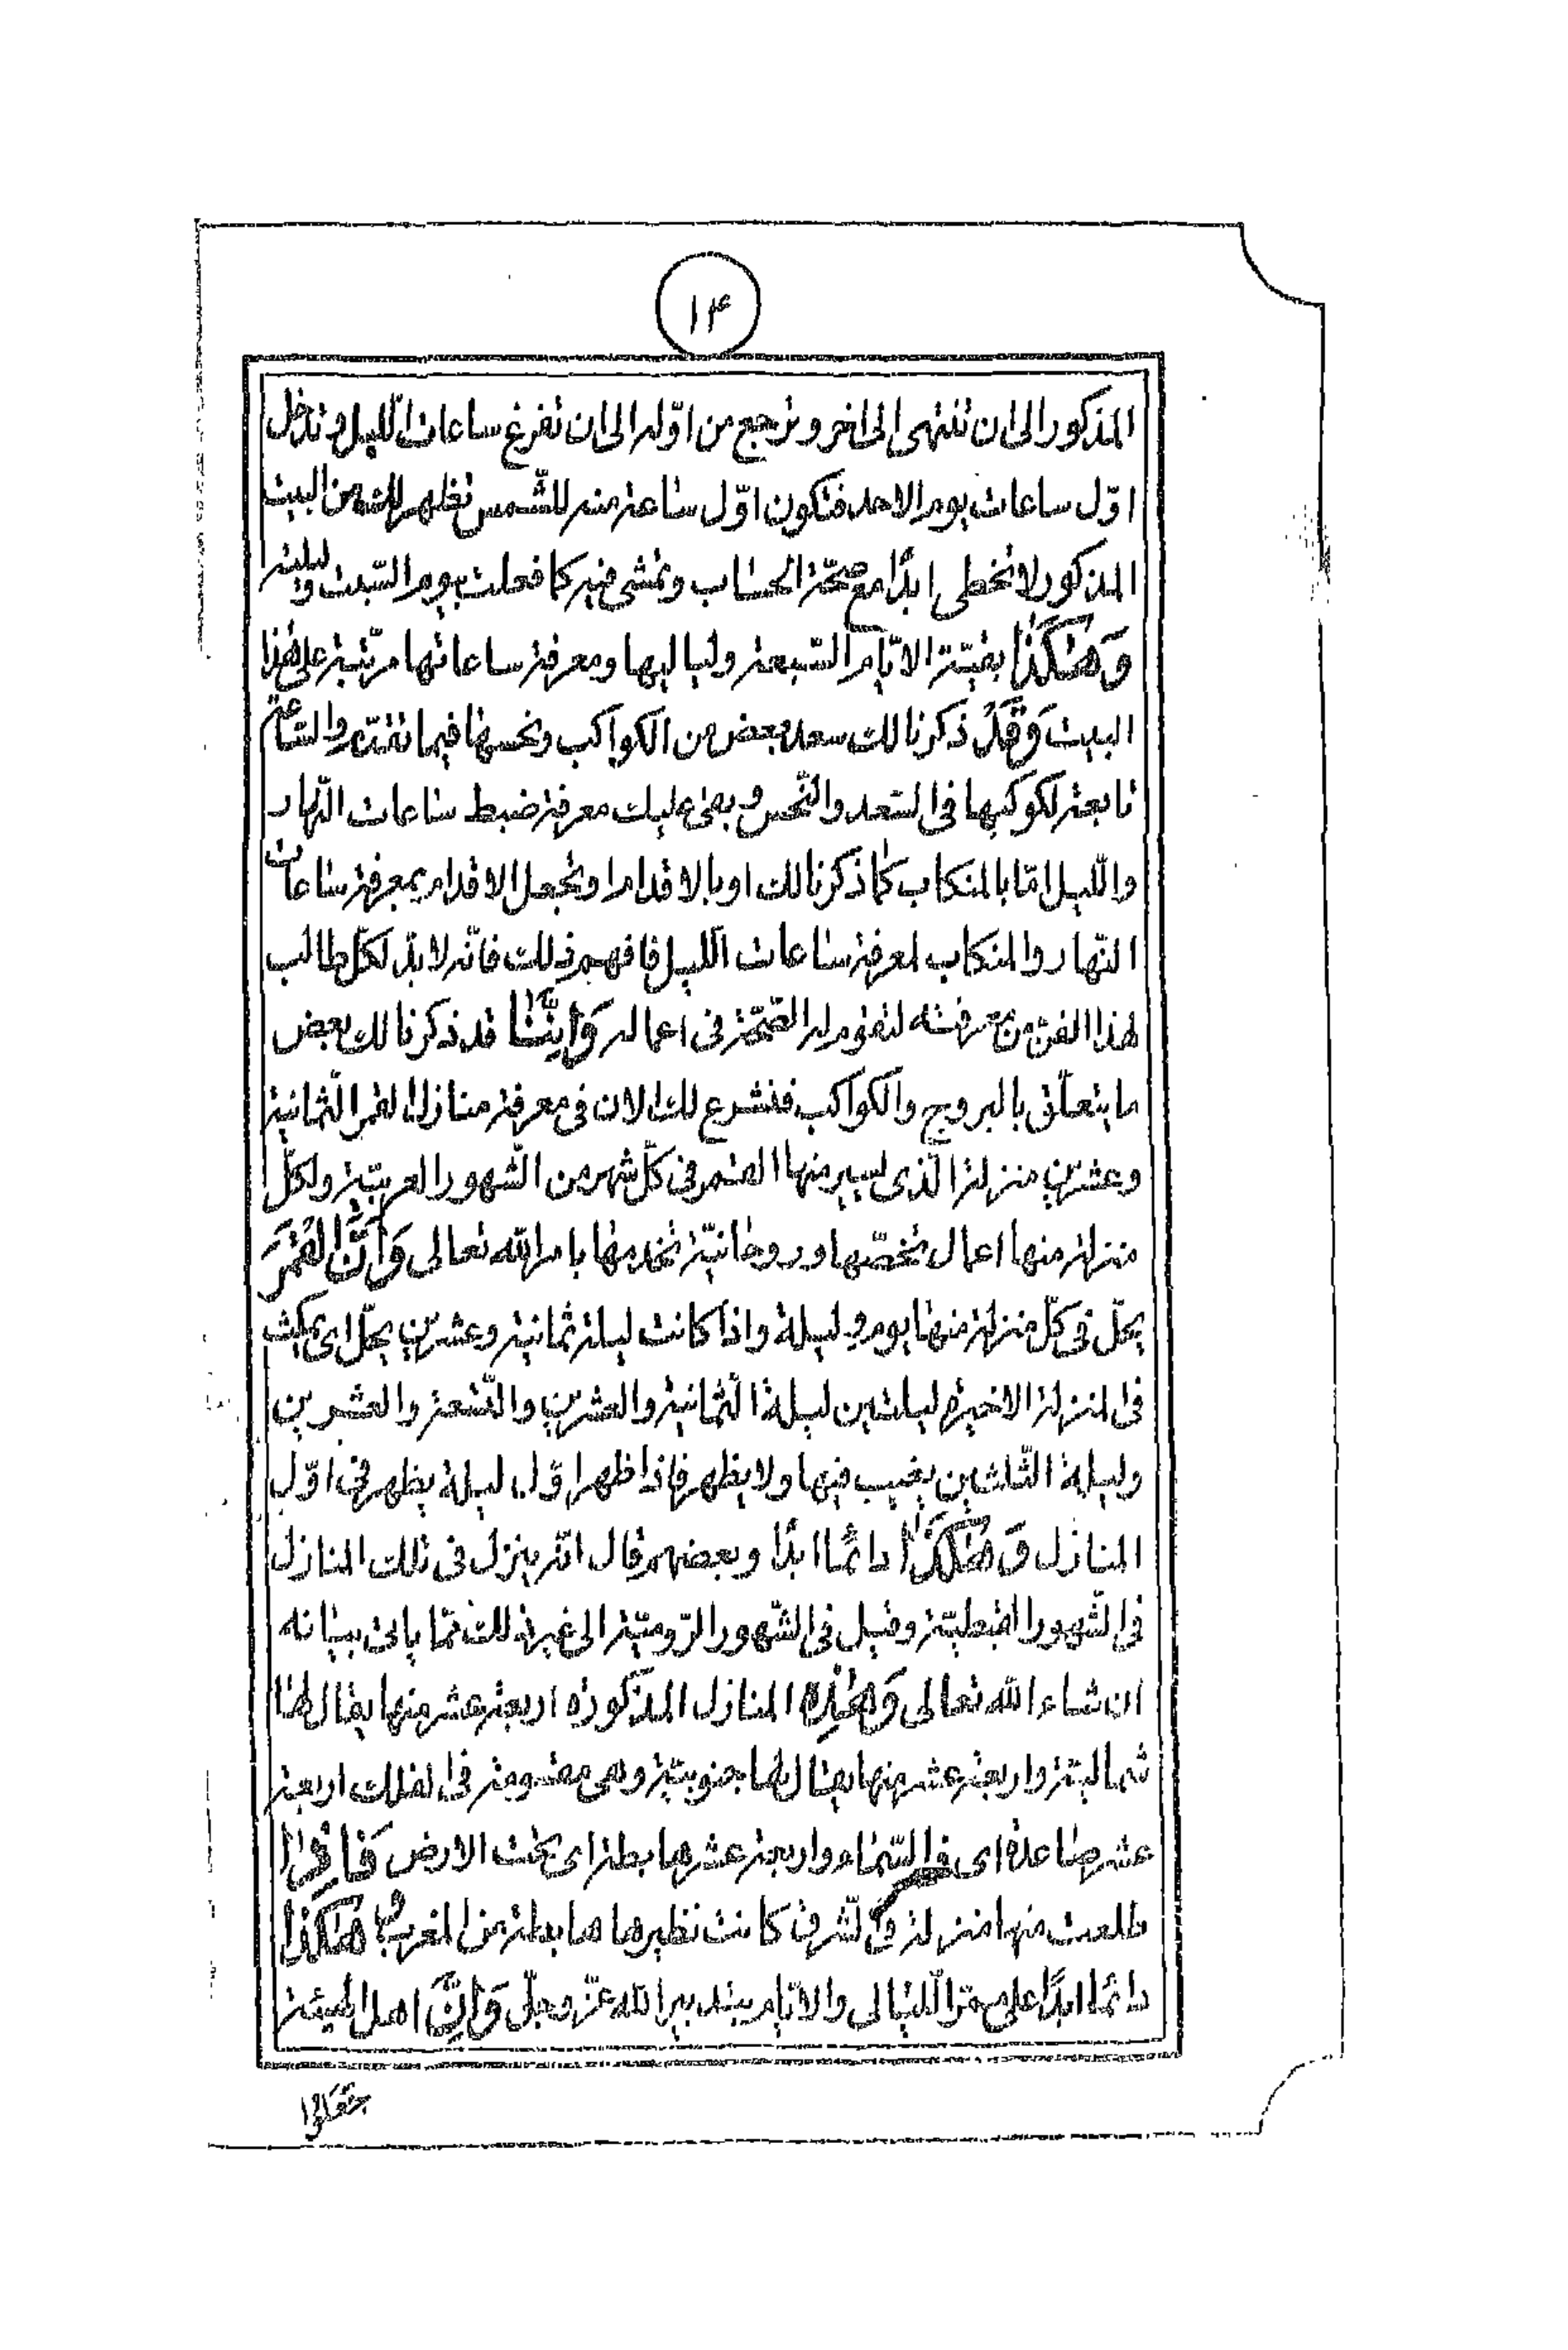 ۱۴
المذكور الى ان تنتهى الى اخره و ترجع من اوّله الى ان تفرغ ساعات اللّيل و تدخل
اوّل ساعات يوم الاحد فتكون اوّل ساعة منه للشّمس تظهر لك من البيت
المذكور لا تخطى ابدًا مع صحّة الحساب وتمشى فيه كما فعلت بيوم السّبت وليلته
وَهٰكَذٰا بقيّة الايّام السّبعة ولياليها ومعرفة ساعاتها مرتّبة على هٰذا
البيت وَقَدْ ذكرنا لك سعد بعض من الكواكب ونحسها فيما تقدّم والسّاعة
تابعة لكوكبها فى السّعد والنّحس و بقى عليك معرفة ضبط ساعات النّهار
واللّيل امّا بالمنكاب كما ذكرنا لك او بالاقدام او تجعل الاقدام بمعرفة ساعات
النّهار والمنكاب لمعرفة ساعات اللّيل فافهم ذلك فانّه لابدّ لكلّ طالب
لهذا الفنّ من معرفته لتقوم له الصّحّة فى اعماله وَاِنَّنٰا قد ذكرنا لك بعض
ما يتعلّق بالبروج والكواكب فنشرع لك الان فى معرفة منازل القمر الثّمانية
وعشرين منزلة الّذى يسير منها القمر فى كلّ شهر من الشّهور العربيّة ولكلّ
منزلة منها اعمال تخصّها وروحانيّة تخدمها بامر الله تعالى وَاَنَّ الْقَمَرَ
يحلّ فى كلّ منزلة منها يوم و ليلة واذا كانت ليلة ثمانية وعشرين يحلّ اى يمكث
فى المنزلة الاخيرة ليلتين ليلة الثّمانية والعشرين والتّسعة والعشرين
وليلة الثّلثين يغيب فيها ولا يظهر فاذا ظهر اوّل ليلة يظهر فى اوّل
المنازل وَ هٰكَذٰا دائمًا ابدًا وبعضهم قال انّه ينزل فى تلك المنازل
فى الشّهور القبطيّة وقيل فى الشّهور الرّوميّة الى غير ذلك ممّا ياتى بيانه
ان شاء الله تعالى وَهٰذِهِ المنازل المذكورة اربعة عشر منها يقال لها
شماليّة واربعة عشر منها يقال لها جنوبيّة وهى مقسومة فى الفلك اربعة
عشر صاعدة اى فى السّماء واربعة عشر هابطة اى تحت الارض فَاِذٰا
طلعت منها منزلة فى الشّرق كانت نظيرها هابطة من المغرب هٰكَذٰا
دائمًا ابدًا على ممرّ اللّيالى والايّام بتدبير الله عزّ وجلّ وَاِنَّ اهل الهيئة
جَعَلُوا